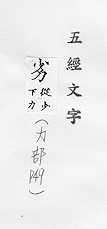 五經文字
劣
從少
下力
(力部
P49)